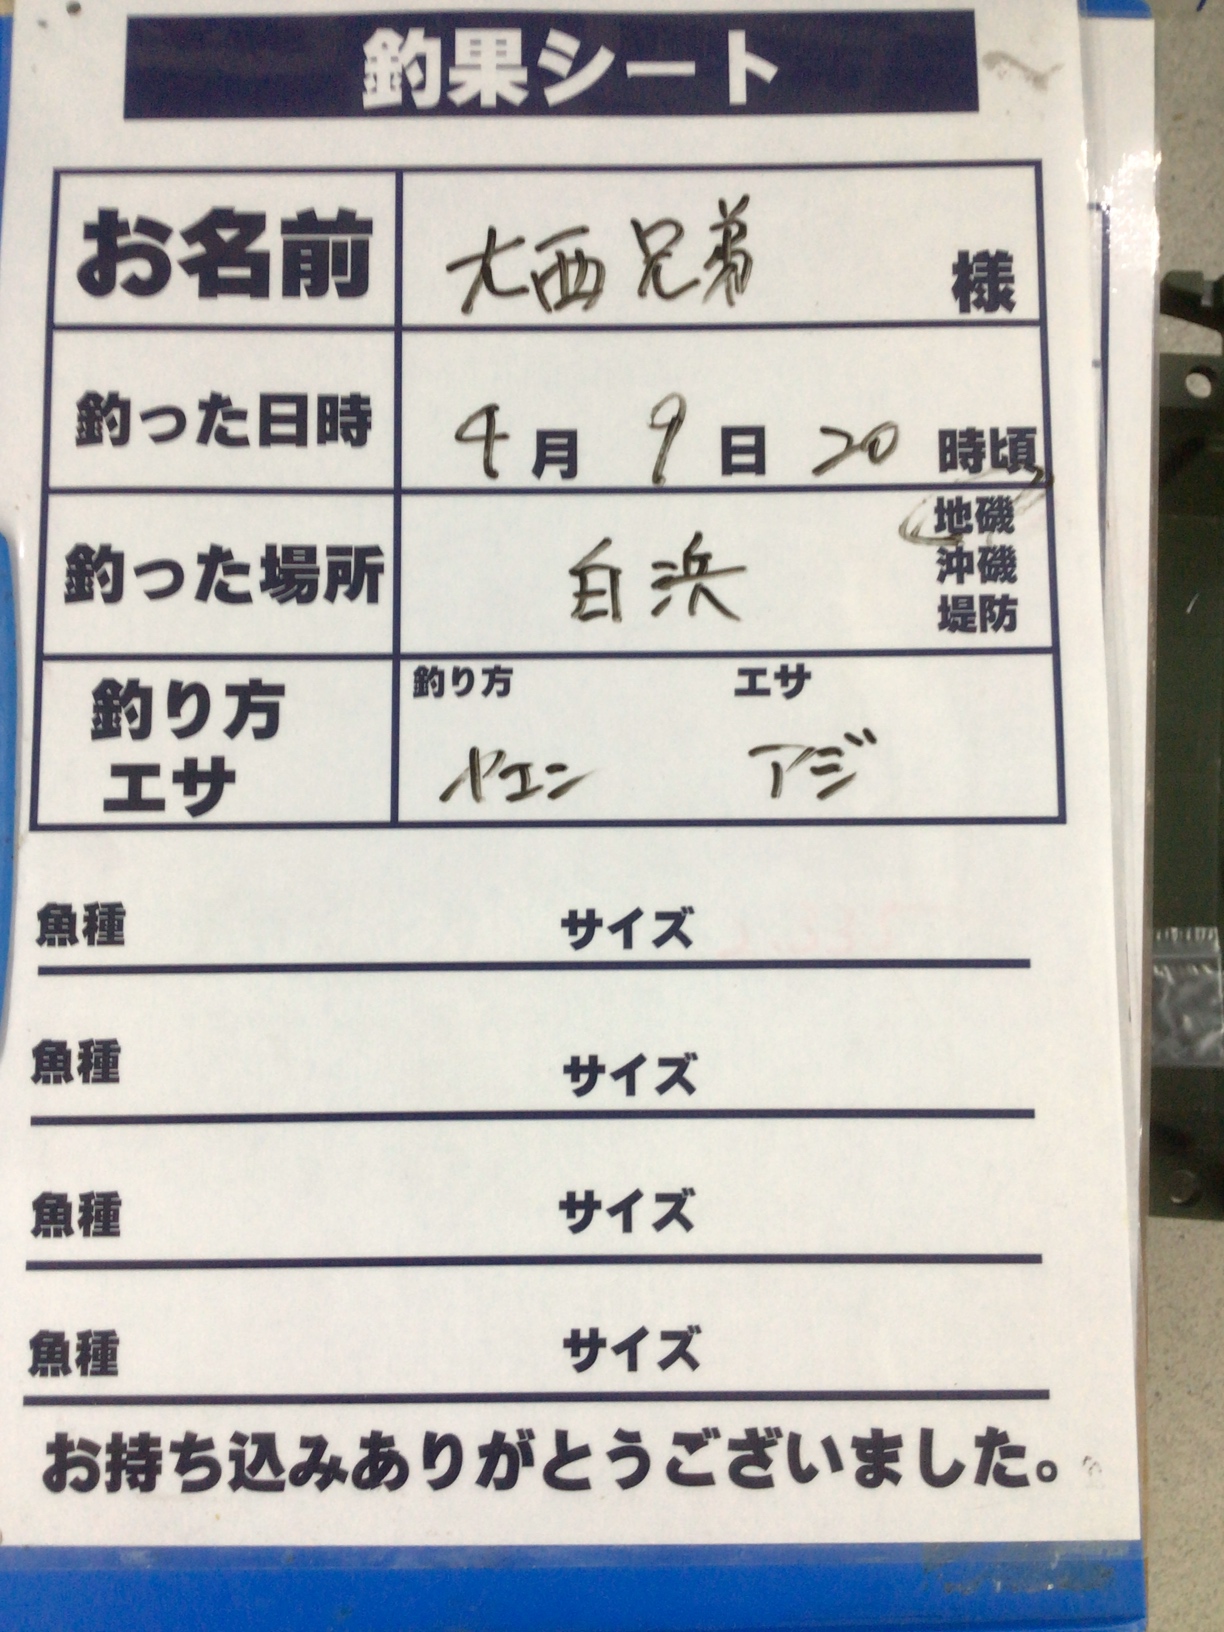 釣果シート
お名前 大西兄弟 様
釣った日時 4月9日20時頃
釣った場所 白浜 地磯
沖磯
堤防
釣り方 エサ
釣り方
エサ
ヤエン アジ
魚種 サイズ
魚種 サイズ
魚種 サイズ
魚種 サイズ
お持ち込みありがとうございました。